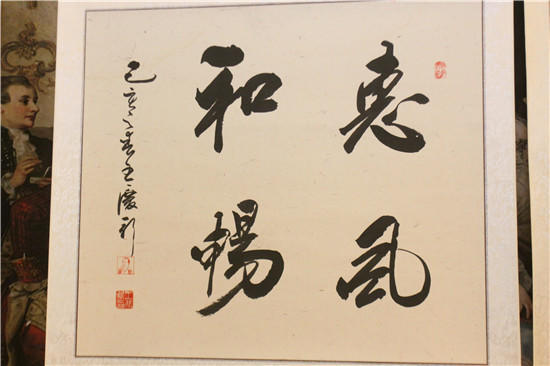 惠風
和暢
己亥之春王慶